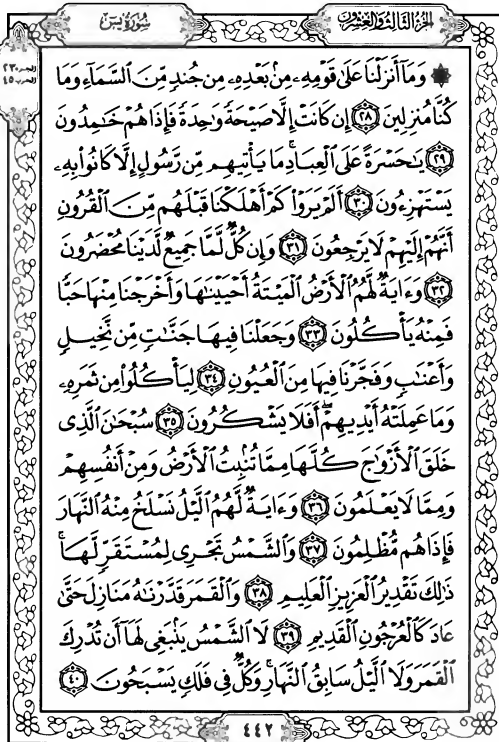 الجزء الثالث والعشرون
سورة يس
الجزء ٢٣
الحزب ٤٥
۞ وَمَآ أَنزَلْنَا عَلَىٰ قَوْمِهِۦ مِنۢ بَعْدِهِۦ مِن جُندٍ مِّنَ ٱلسَّمَآءِ وَمَا
كُنَّا مُنزِلِينَ ۝٢٨ إِن كَانَتْ إِلَّا صَيْحَةً وَٰحِدَةً فَإِذَا هُمْ خَٰمِدُونَ
۝٢٩ يَٰحَسْرَةً عَلَى ٱلْعِبَادِ ۚ مَا يَأْتِيهِم مِّن رَّسُولٍ إِلَّا كَانُوا۟ بِهِۦ
يَسْتَهْزِءُونَ ۝٣٠ أَلَمْ يَرَوْا۟ كَمْ أَهْلَكْنَا قَبْلَهُم مِّنَ ٱلْقُرُونِ
أَنَّهُمْ إِلَيْهِمْ لَا يَرْجِعُونَ ۝٣١ وَإِن كُلٌّ لَّمَّا جَمِيعٌ لَّدَيْنَا مُحْضَرُونَ
۝٣٢ وَءَايَةٌ لَّهُمُ ٱلْأَرْضُ ٱلْمَيْتَةُ أَحْيَيْنَٰهَا وَأَخْرَجْنَا مِنْهَا حَبًّا
فَمِنْهُ يَأْكُلُونَ ۝٣٣ وَجَعَلْنَا فِيهَا جَنَّٰتٍ مِّن نَّخِيلٍ
وَأَعْنَٰبٍ وَفَجَّرْنَا فِيهَا مِنَ ٱلْعُيُونِ ۝٣٤ لِيَأْكُلُوا۟ مِن ثَمَرِهِۦ
وَمَا عَمِلَتْهُ أَيْدِيهِمْ ۖ أَفَلَا يَشْكُرُونَ ۝٣٥ سُبْحَٰنَ ٱلَّذِى
خَلَقَ ٱلْأَزْوَٰجَ كُلَّهَا مِمَّا تُنۢبِتُ ٱلْأَرْضُ وَمِنْ أَنفُسِهِمْ
وَمِمَّا لَا يَعْلَمُونَ ۝٣٦ وَءَايَةٌ لَّهُمُ ٱلَّيْلُ نَسْلَخُ مِنْهُ ٱلنَّهَارَ
فَإِذَا هُم مُّظْلِمُونَ ۝٣٧ وَٱلشَّمْسُ تَجْرِى لِمُسْتَقَرٍّ لَّهَا ۚ
ذَٰلِكَ تَقْدِيرُ ٱلْعَزِيزِ ٱلْعَلِيمِ ۝٣٨ وَٱلْقَمَرَ قَدَّرْنَٰهُ مَنَازِلَ حَتَّىٰ
عَادَ كَٱلْعُرْجُونِ ٱلْقَدِيمِ ۝٣٩ لَا ٱلشَّمْسُ يَنۢبَغِى لَهَآ أَن تُدْرِكَ
ٱلْقَمَرَ وَلَا ٱلَّيْلُ سَابِقُ ٱلنَّهَارِ ۚ وَكُلٌّ فِى فَلَكٍ يَسْبَحُونَ ۝٤٠
٤٤٢